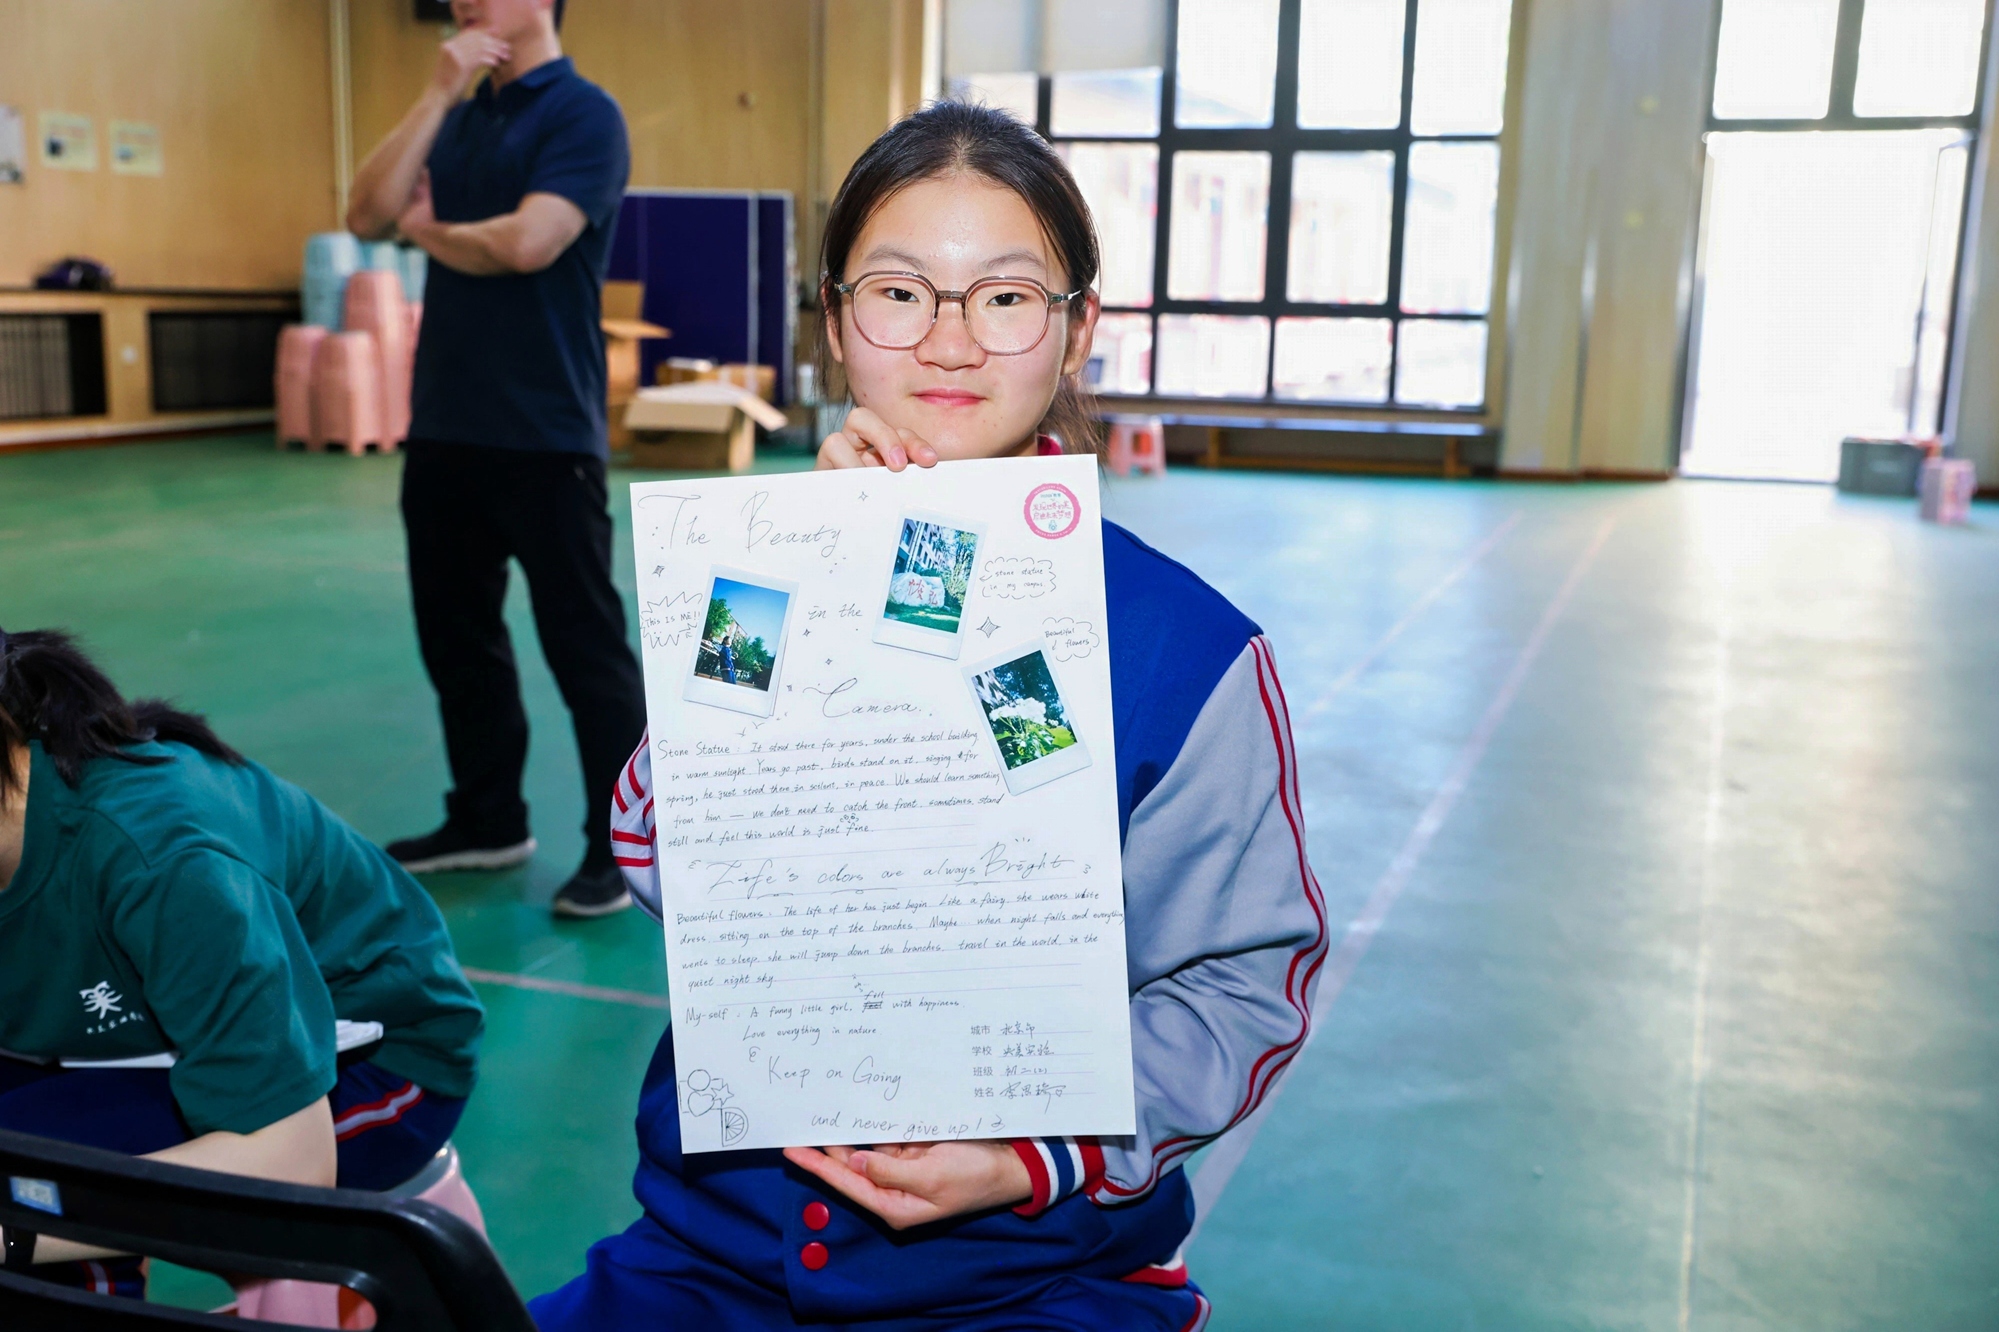 The Beauty
in the
Camera
This Is ME!!
stone statue
in my campus.
Beautiful
flowers
Stone Statue : It stood there for years, under the school building
in warm sunlight. Years go past, birds stand on it, singing for
spring, he just stood there in scilent, in peace. We should learn something
from him — we don't need to catch the front, sometimes, stand
still and feel this world is just fine.
Life's colors are always Bright
Beautiful flowers : The life of her has just begin. Like a fairy, she wears white
dress, sitting on the top of the branches. Maybe, when night falls and everything
wents to sleep, she will jump down the branches, travel in the world, in the
quiet night sky.
My-self : A funny little girl, full with happiness.
Love everything in nature.
城市 北京市
学校 央美实验
班级 初二(2)
姓名 李思
Keep on Going
and never give up!